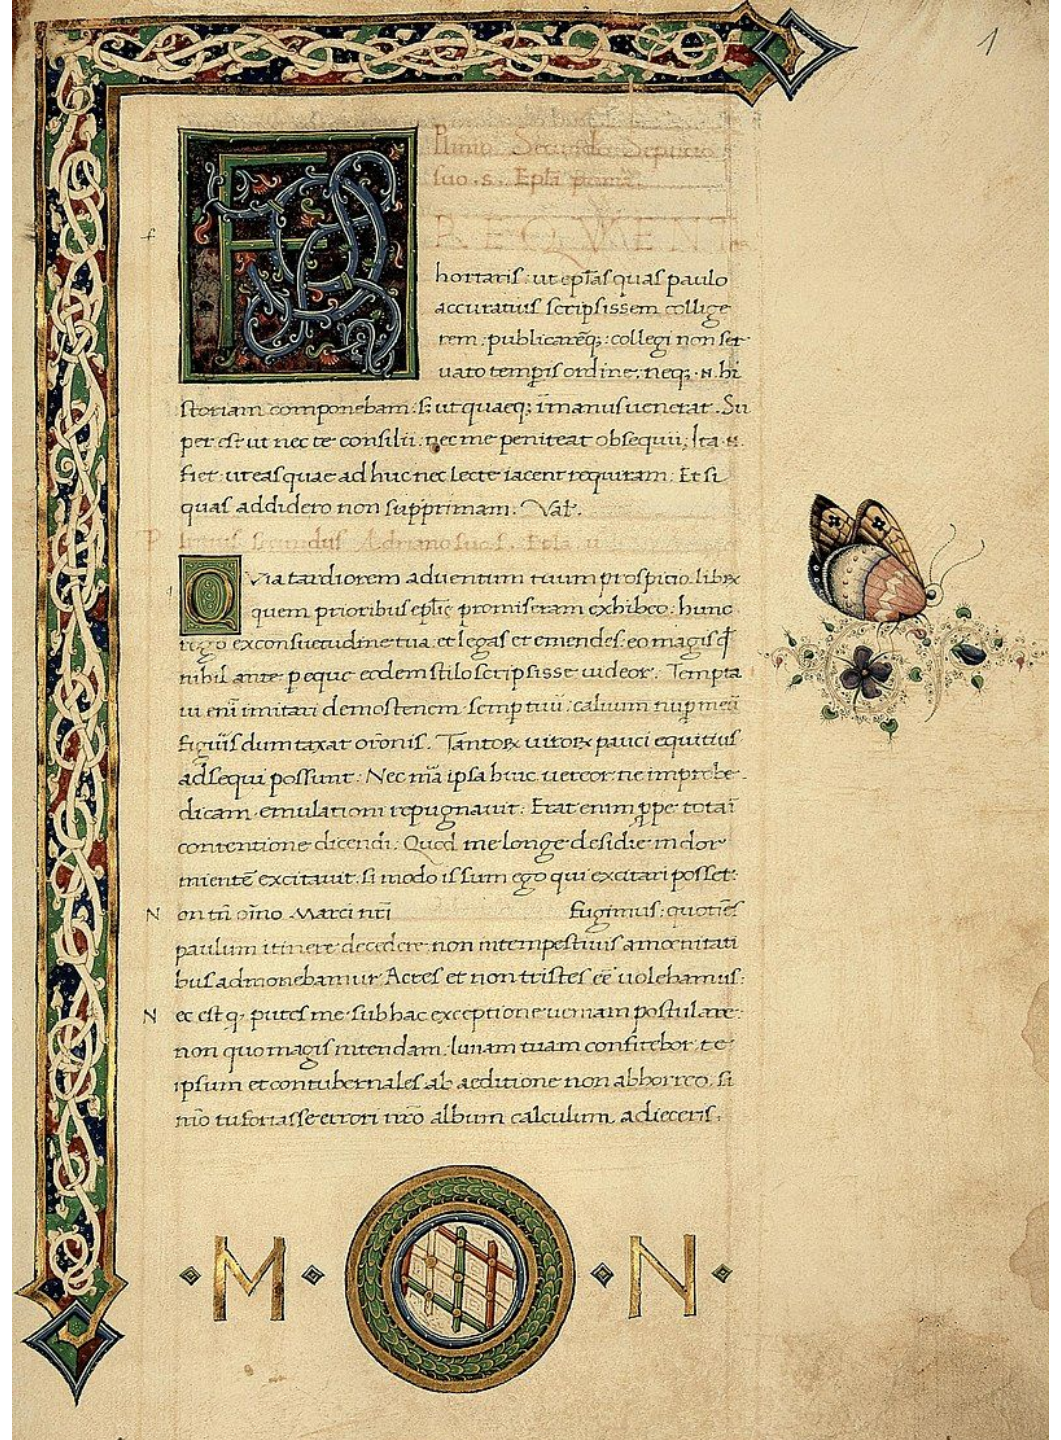 1
Plinio Secundo Septicio
suo . s . Epła prima.
F
REQVENT
f
hortaris : ut epłas quas paulo
accuratius scripsissem collige
rem : publicarēq; : collegi non ser
uato temp̄is ordine : neq; · n · hi
storiam componebam : s; ut quaeq; īmanus uenerat . Su
per est ut nec te consilii : nec me peniteat obsequii ; Ita · n ·
fiet : ut eas quae ad huc nec lecte iacent requiram . Et si
quas addidero non supprimam . Val .
P linius secundus Adriano suo s . Epła ii
Q Via tardiorem aduentum tuum prospicio . libꝝ
quem prioribus epłis promiseram exhibeo . hunc
rogo ex consuetudine tua et legas et emendes . eo magis
nihil ante peque eodem stilo scripsisse uideor . Tempta
ui enī imitari demostenem semp tuū : caluum nup meū
figuris dumtaxat or̄onis . Tantoꝝ uiroꝝ pauci equitius
adsequi possunt . Nec mā ipsa huic uereor ne improbe
dicam . emulationi repugnauit : Erat enim ꝓpe totaī
contentione dicendi . Quod me longe desidie indor
mientē excitauit . si modo is sum ego qui excitari posset :
N on tn̄ oīno Marci nr̄i fugimus : quotiēs
paulum itinere decedere non intempestiuis amoenitati
bus admonebamur Acres et non tristes eē uolebamus :
N ec est q; putes me sub hac exceptione ueniam postulare :
non quo magis intendam . limam tuam confitebor . et
ipsum et contubernales ab aeditione non abhorreo . si
mō tu fortasse errori nr̄o album calculum adieceris .
M N